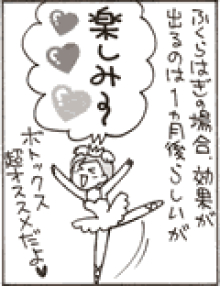 ふくらはぎの場合 効果が
出るのは1ヵ月後らしいが
楽しみ〜
ボトックス
超オススメだよ